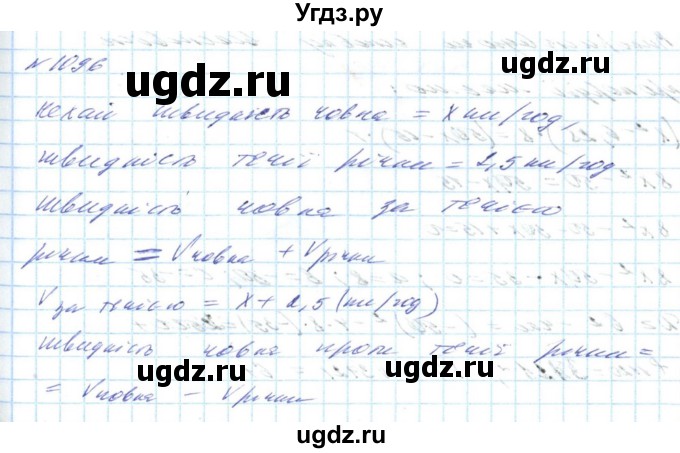 Угдз.ру
№1096
ugdz.ru ugdz.ru
Нехай швидкість човна = x км/год,
швидкість течії річки = 2,5 км/год
ugdz.ru ugdz.ru
швидкість човна за течією
річки = Vчовна + Vрічки
ugdz.ru ugdz.ru
V за течією = x + 2,5 (км/год)
швидкість човна проти течії річки =
ugdz.ru ugdz.ru
= Vчовна - Vрічки
ugdz.ru